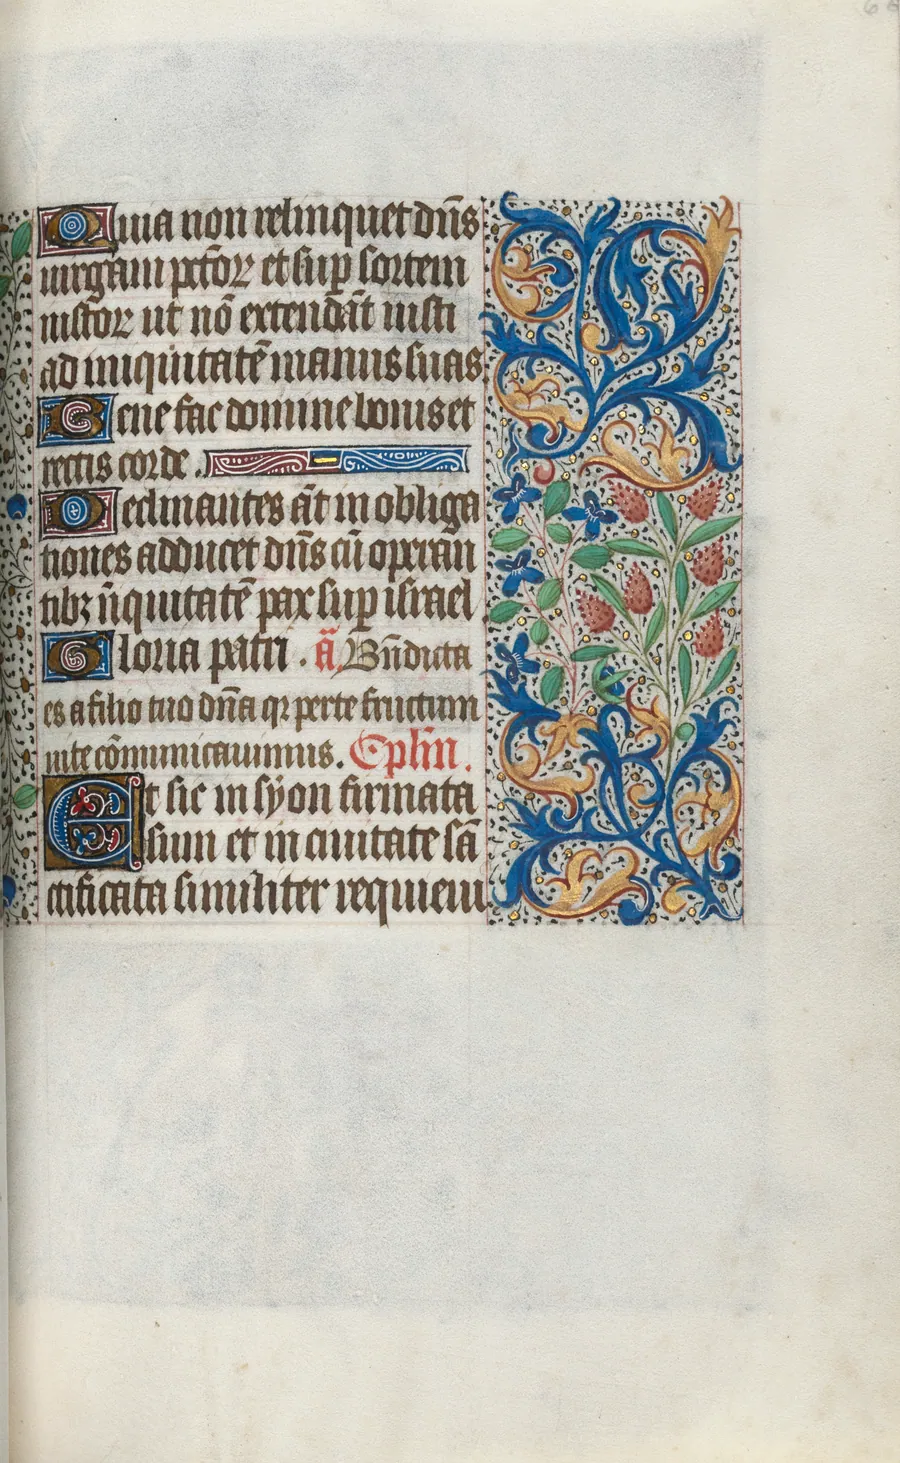 Quia non relinquet dñs
uirgam pctõꝝ et suꝑ sortem
iustoꝝ ut nõ extendãt iusti
ad iniquitatẽ manus suas
Bene fac domine bonis et
rectis corde.
Declinantes ãt in obliga
tiones adducet dñs cũ operãn
tibꝫ ĩiquitatẽ pax suꝑ israel
Gloria patri . ã. Bñdicta
es a filio tuo dñã qꝛ per te fructum
uite cõmunicauimus. Cpłm.
Et sic in syon firmata
sum et in ciuitate sã
ctificata similiter requieui